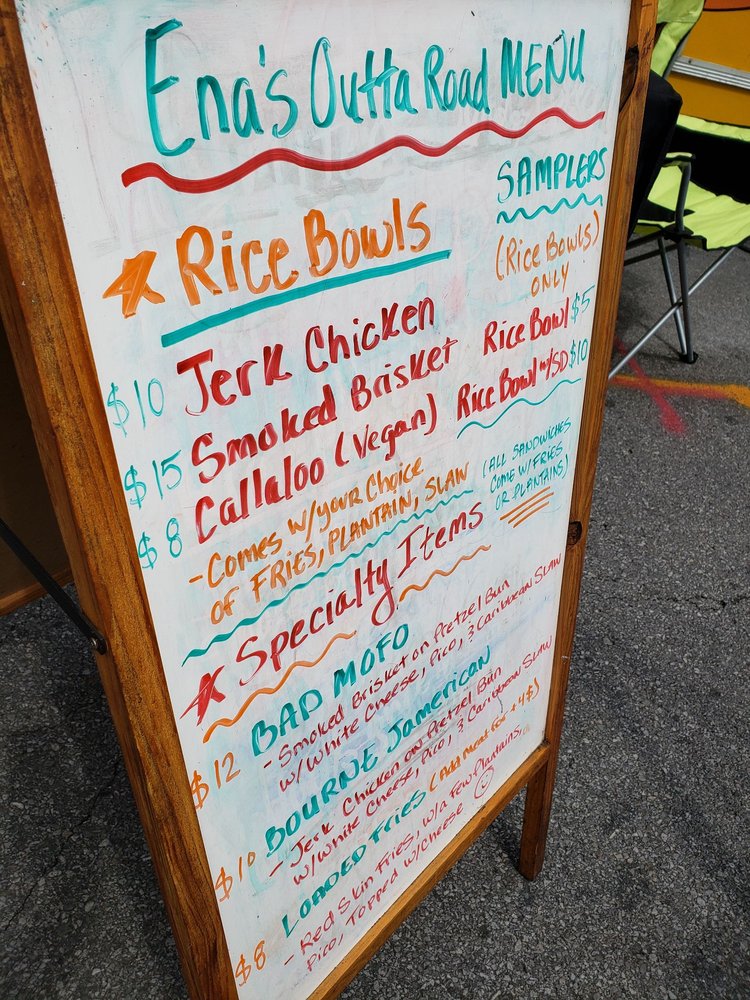 Ena's Outta Road MENU
Rice Bowls
$10 Jerk Chicken
$15 Smoked Brisket
$8 Callaloo (Vegan)
- Comes w/your Choice
of FRIES, PLANTAIN, SLAW
SAMPLERS
(Rice Bowls)
ONLY
Rice Bowl $5
Rice Bowl w/SD $10
(ALL SANDWICHES
COME W/FRIES
OR PLANTAINS)
Specialty Items
$12 BAD MOFO
- Smoked Brisket on Pretzel Bun
w/White Cheese, Pico, & Caribbean Slaw
$10 BOURNE Jamerican
- Jerk Chicken on Pretzel Bun
w/White Cheese, Pico, & Caribbean Slaw
$8 LOADED FRIES (Add meat for +4$)
- Red Skin Fries, w/a Few Plantains,
Pico, Topped w/Cheese